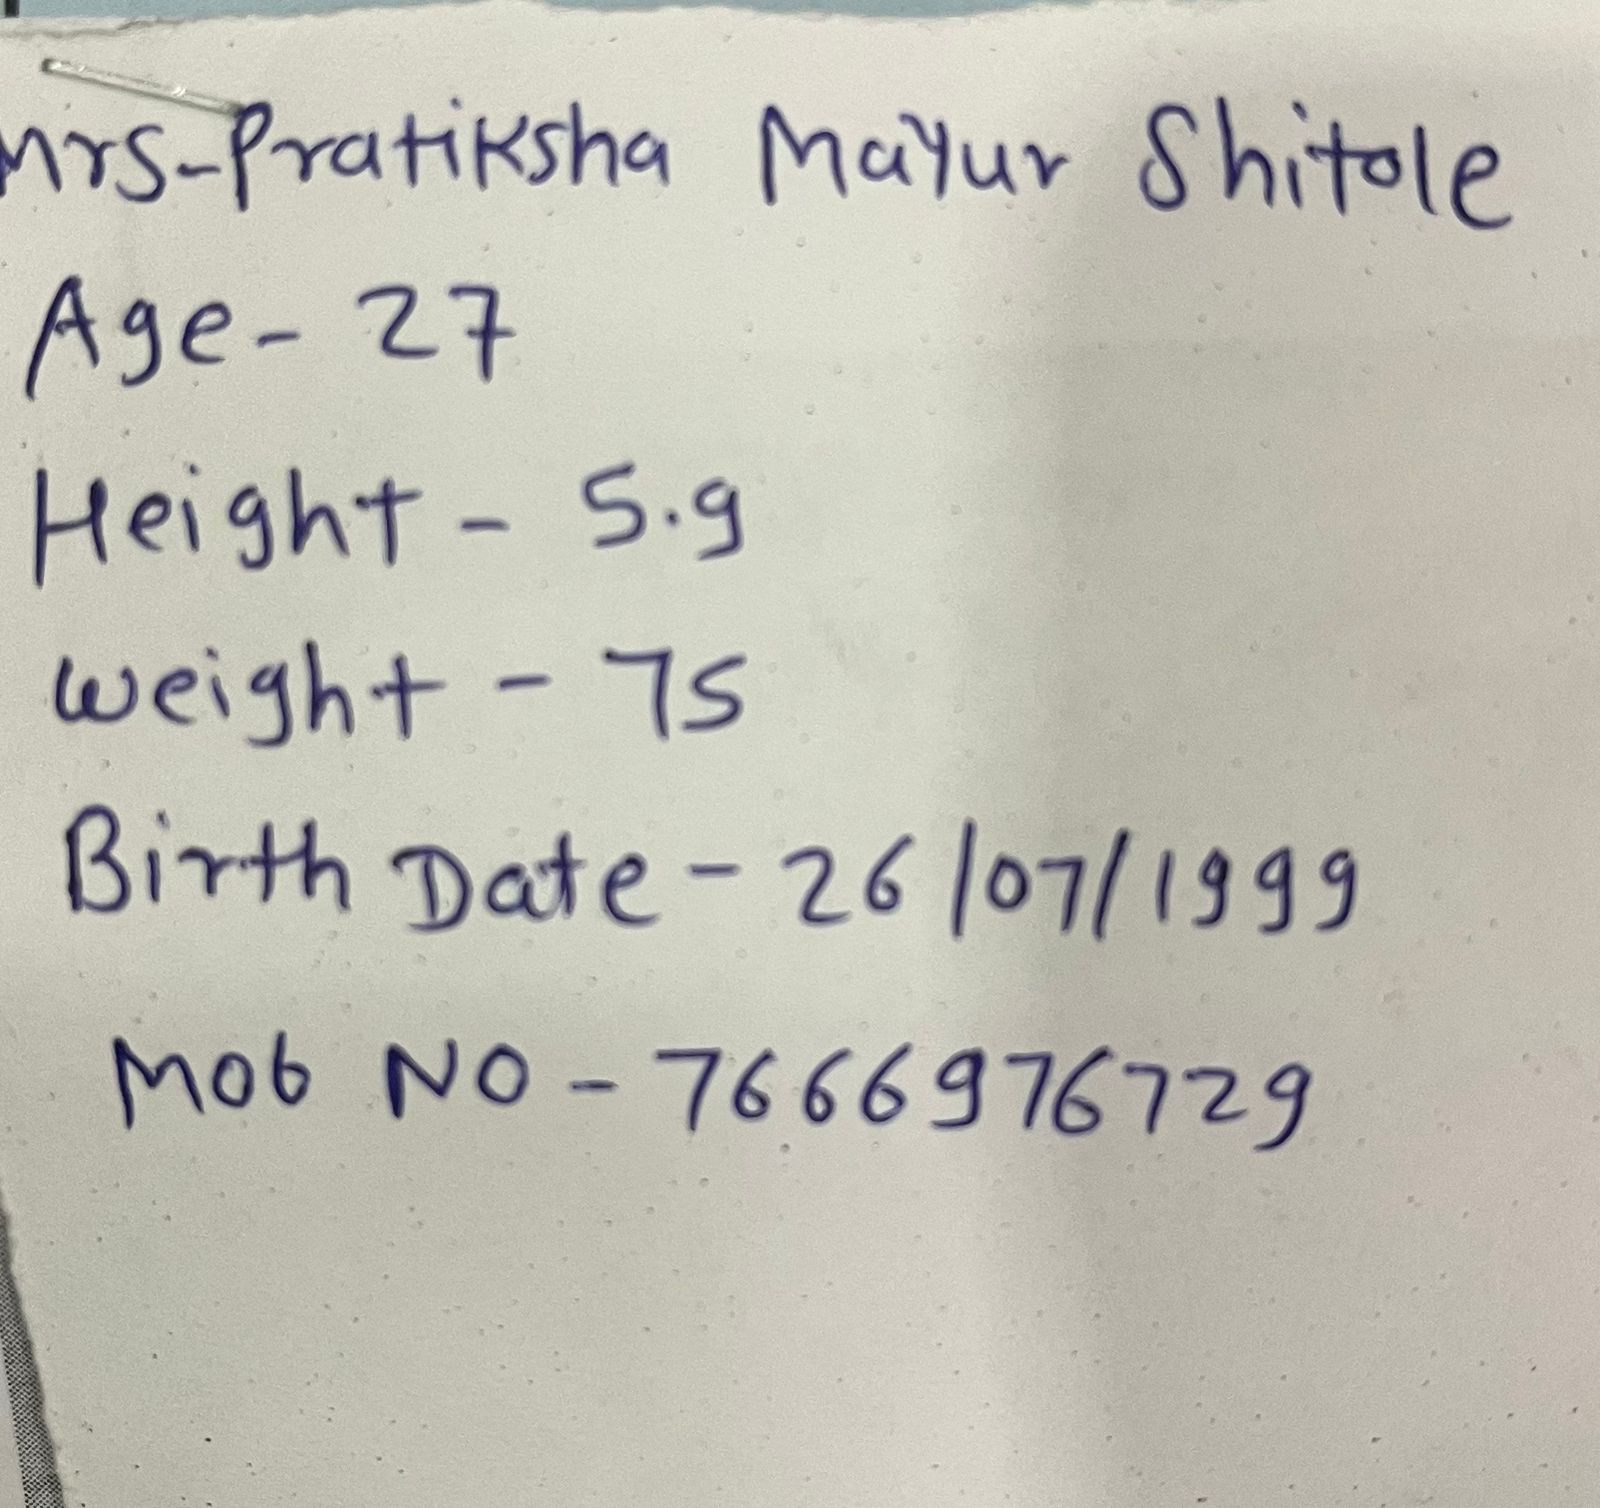 Mrs-Pratiksha Mayur Shitole
Age- 27
Height - 5.9
weight - 75
Birth Date - 26/07/1999
Mob NO - 7666976729